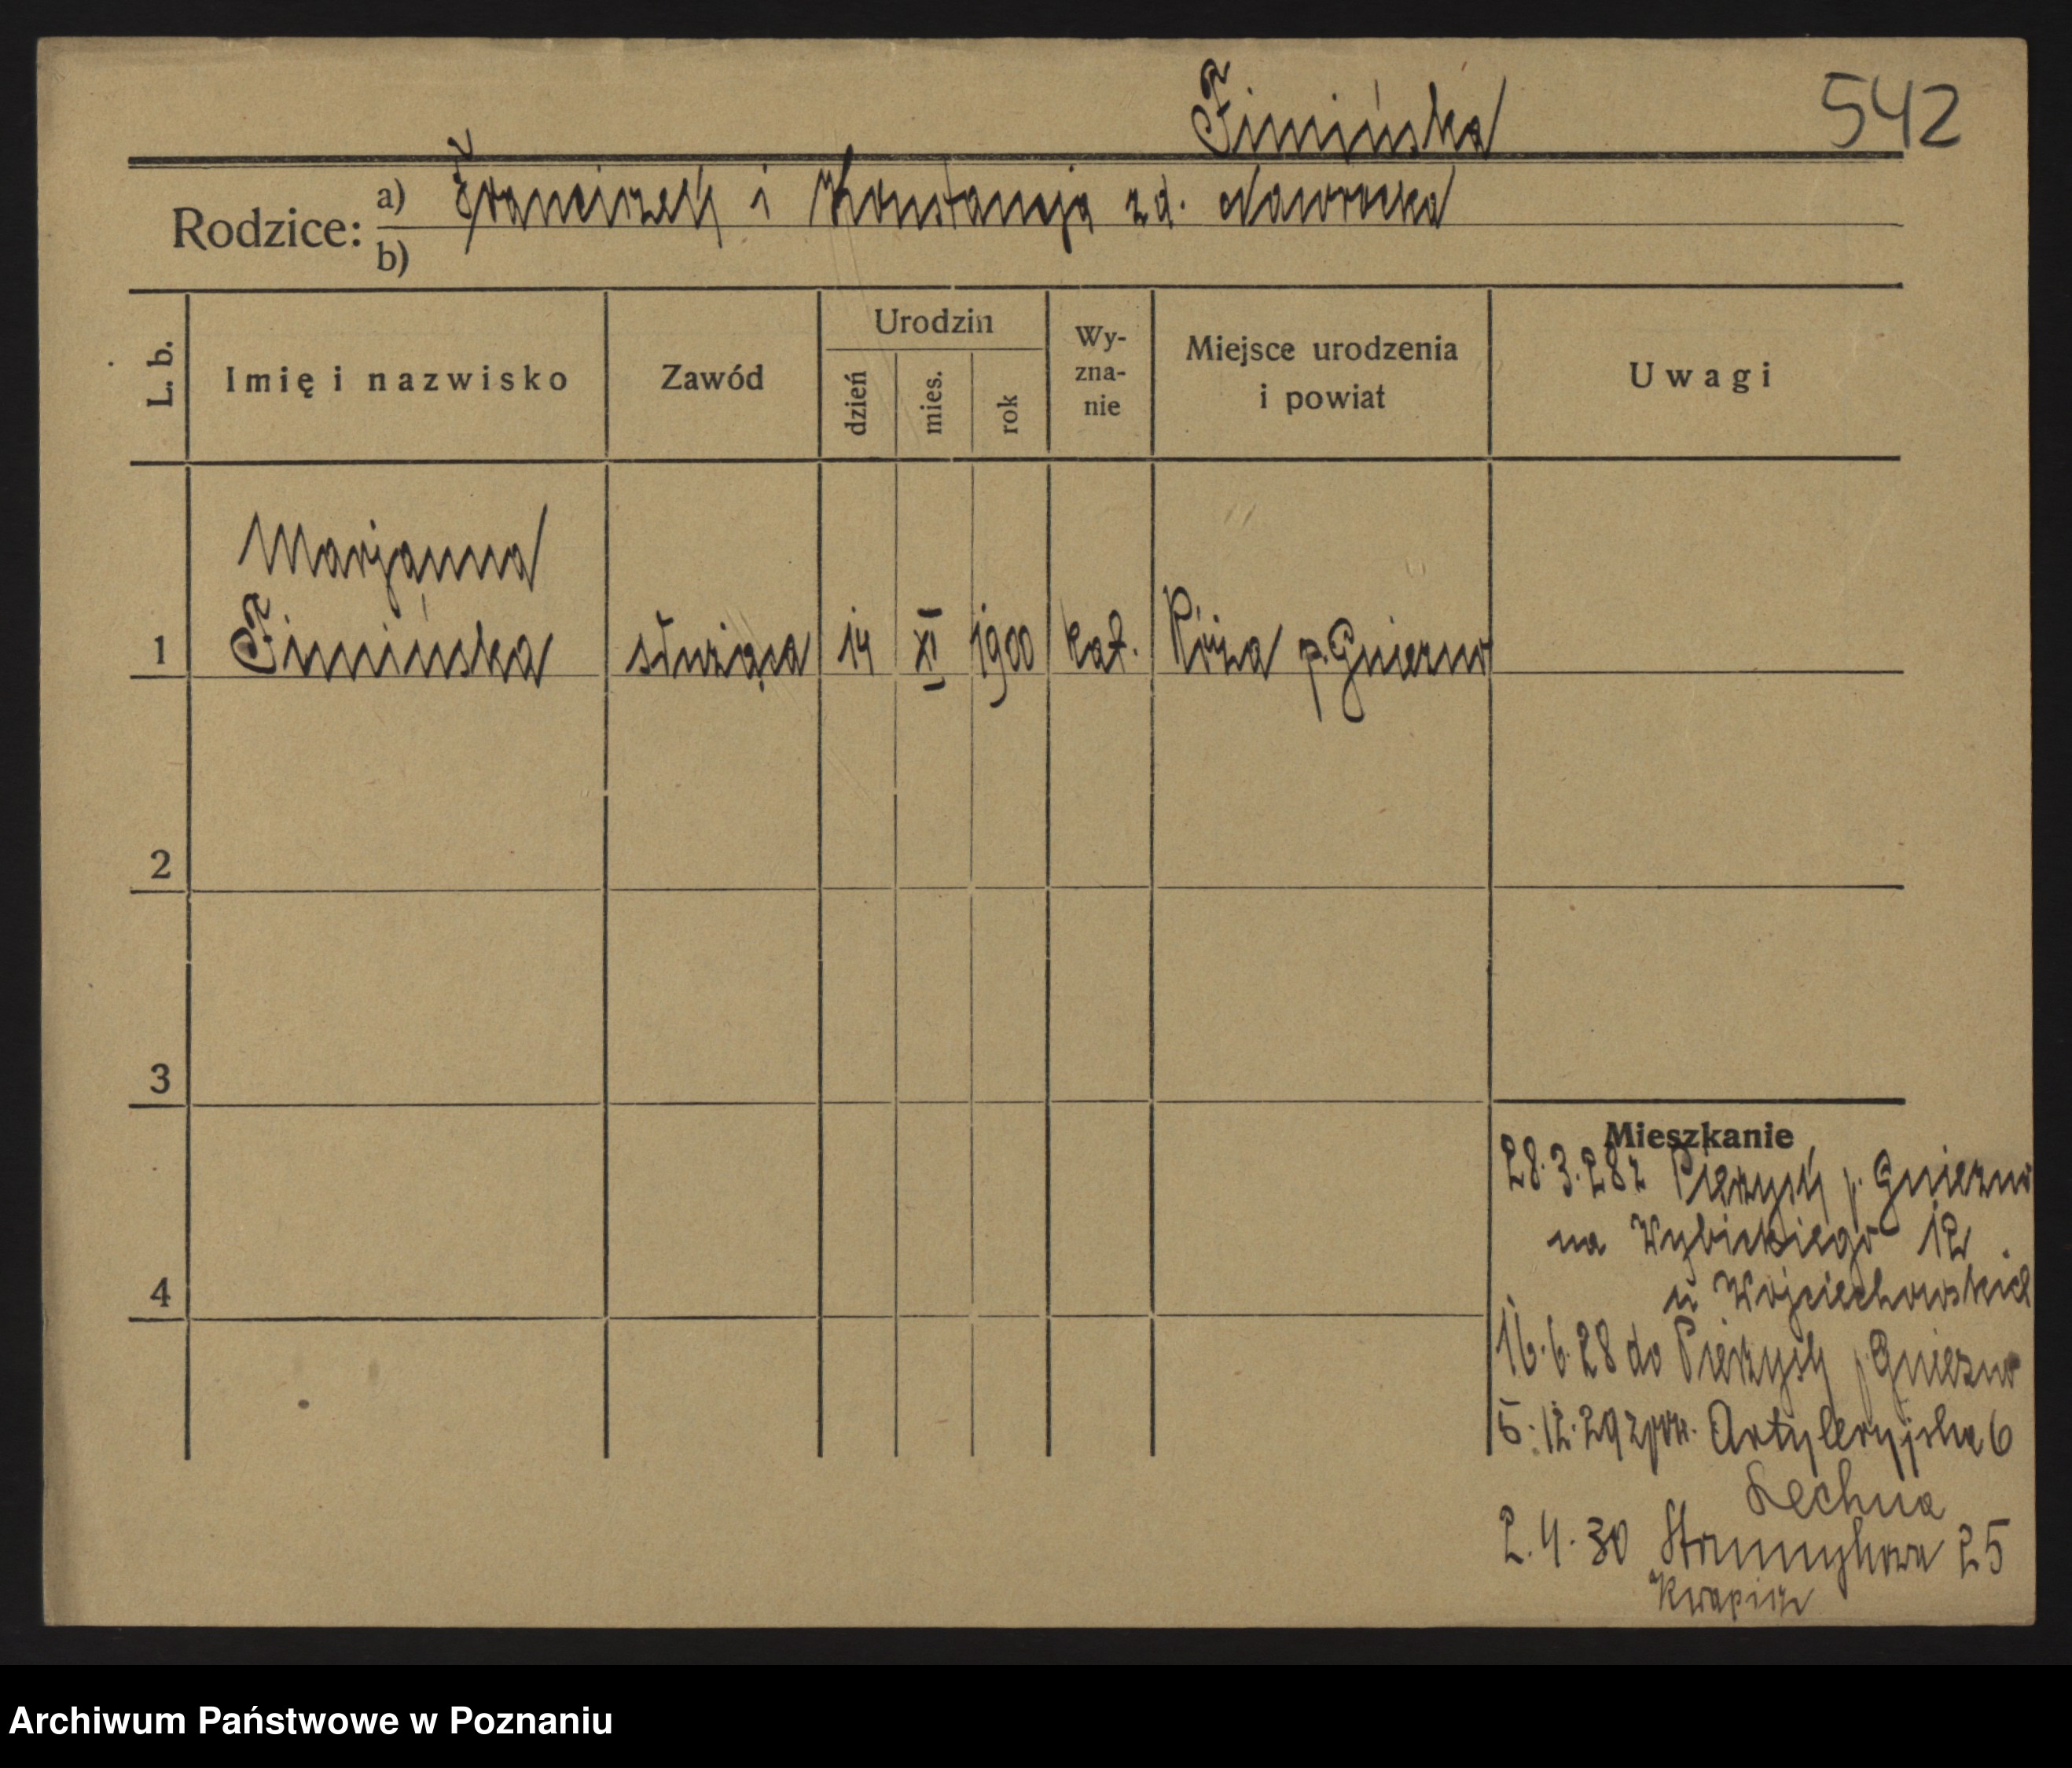 Fimińska
542
Rodzice:
a) Franciszek i Konstancja zd. Nawrocka
b)
L. b.
Imię i nazwisko
Zawód
Urodzin
dzień
mies.
rok
Wy-
zna-
nie
Miejsce urodzenia
i powiat
Uwagi
Marjanna
1 Fimińska służąca 14 XI 1900 kat. Róża p. Gniezno
2
3
4
Mieszkanie
28.3.28 z Pierzysk p. Gniezno
na Wybickiego 12
u Wojciechowskich
16.6.28 do Pierzysk p. Gniezno
5.12.29 zpow. Artyleryjska 6
Lechna
2.4.30 Strumykowa 25
Kwapisz
Archiwum Państwowe w Poznaniu